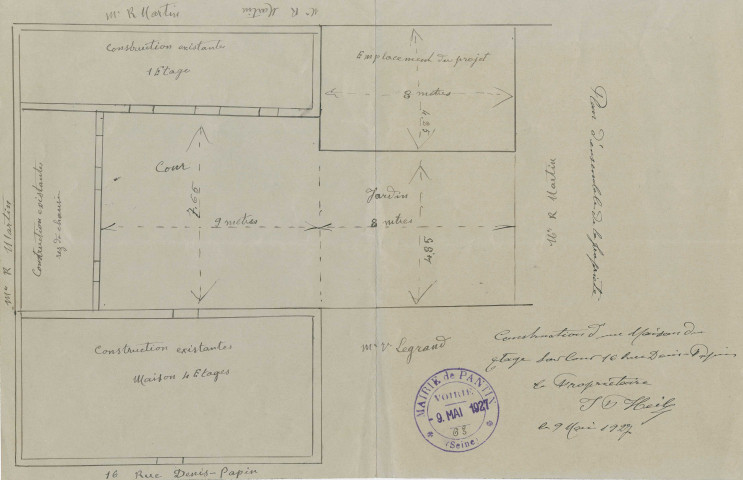 Mr R Martin
Mr R Martin
Construction existante
1 Etage
Emplacement du projet
8 metres
4.35
Cour
7.55
9 metres
Construction existante
rez de chaussée
Mr R Martin
Jardin
8 metres
4.85
Mr R Martin
Plan d'ensemble de la propriété
Construction existantes
Maison 4 Etages
Mr Vve Legrand
16 Rue Denis-Papin
MAIRIE de PANTIN
VOIRIE
9. MAI 1927
(Seine)
Construction d'une Maison d'un
étage sur Cour 16 Rue Denis-Papin
Le Propriétaire
le 9 Mai 1927